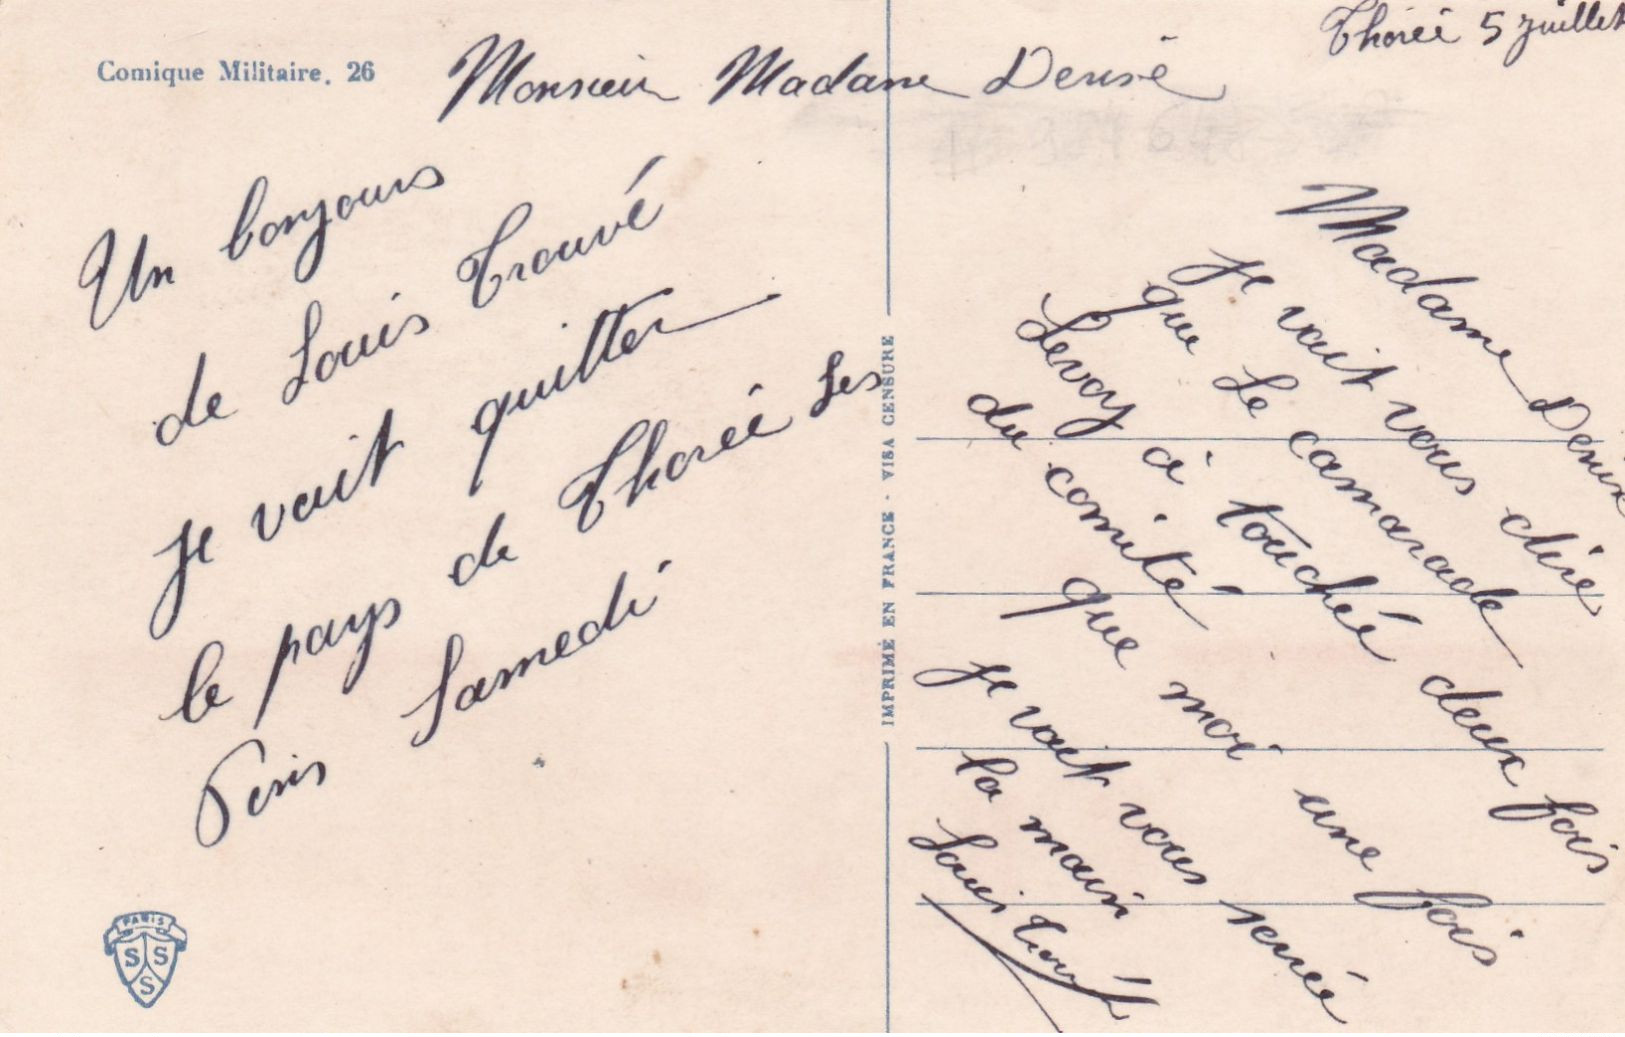 Comique Militaire. 26
Thorée 5 juillet
Monsieur Madame Denise
Un bonjours
de Louis Trouvé
je vait quitter
le pays de Thorée Les
Pins Samedi
IMPRIMÉ EN FRANCE - VISA CENSURE
Madame Denise
Je vait vous dire
que Le camarade
Levoy à touchéé deux fois
du comité
que moi une fois
je vait vous serrée
la main
Louis Trouvé
PARIS
S S
S